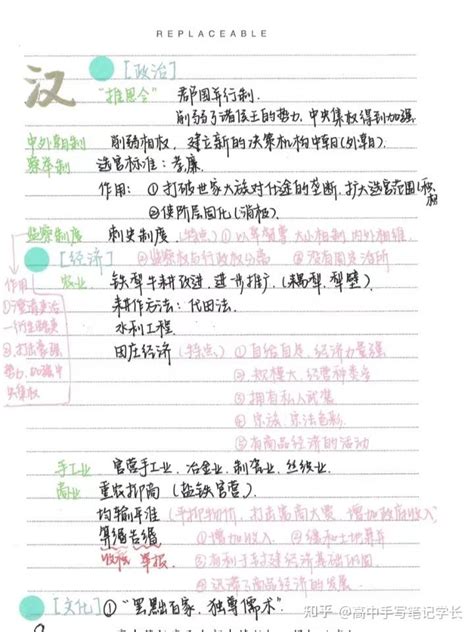 REPLACEABLE
汉 [政治]
"推恩令" 郡国并行制.
削弱了诸侯王的势力，中央集权得到加强
中外朝制 削弱相权，建立新的决策机构中朝(外朝).
察举制 选官标准：孝廉
作用：①打破世家大族对仕途的垄断，扩大选官范围(积极)
②使阶层固化(消极).
监察制度 刺史制度 (特点) ①以卑察尊 大小相制 内外相维
②监察权与行政权分离 ③没有固定治所
[经济]
农业 铁犁牛耕改进，进一步推广(耦犁，犁壁)
作用
耕作方法：代田法.
水利工程
田庄经济 (特点) ①自给自足，经济力量强
②规模大，经营种类多
③拥有私人武装
④宗族，宗法色彩.
⑤有商品经济的活动
势力，加强中
央集权
手工业 官营手工业，冶金业，制瓷业，丝织业.
商业 重农抑商(盐铁官营).
均输平准 (平抑物价，打击富商大贾 增加政府收入)
算缗告缗 ①增加收入 ②缓和土地兼并
收税 举报 ③有利于封建经济基础的巩固
④阻滞了商品经济的发展
[文化] ①"罢黜百家，独尊儒术"
知乎 @高中手写笔记学长